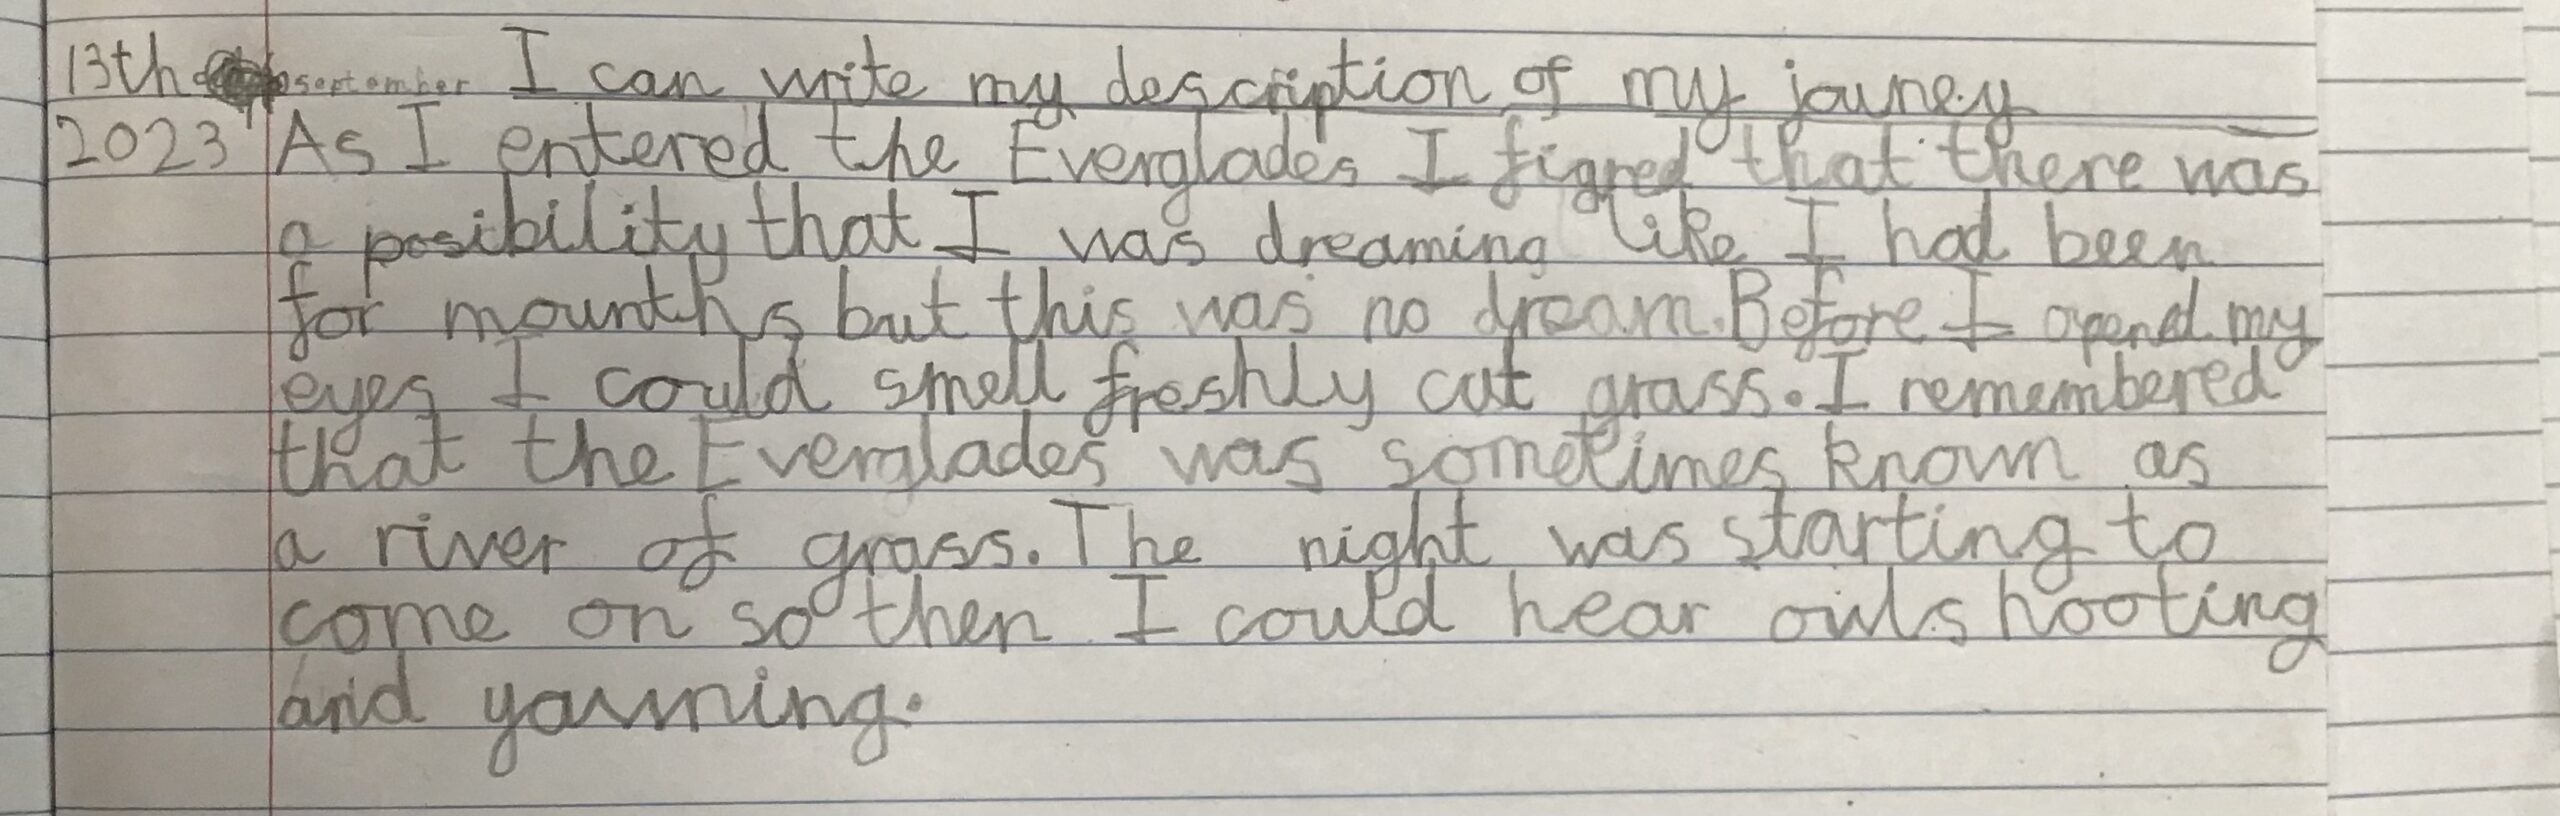 13th september I can write my description of my jouney
2023 As I entered the Everglades I figred that there was
a posibility that I was dreaming like I had been
for mounths but this was no dream. Before I opend my
eyes I could smell freshly cut grass. I remembered
that the Everglades was sometimes known as
a river of grass. The night was starting to
come on so then I could hear owls hooting
and yawning.